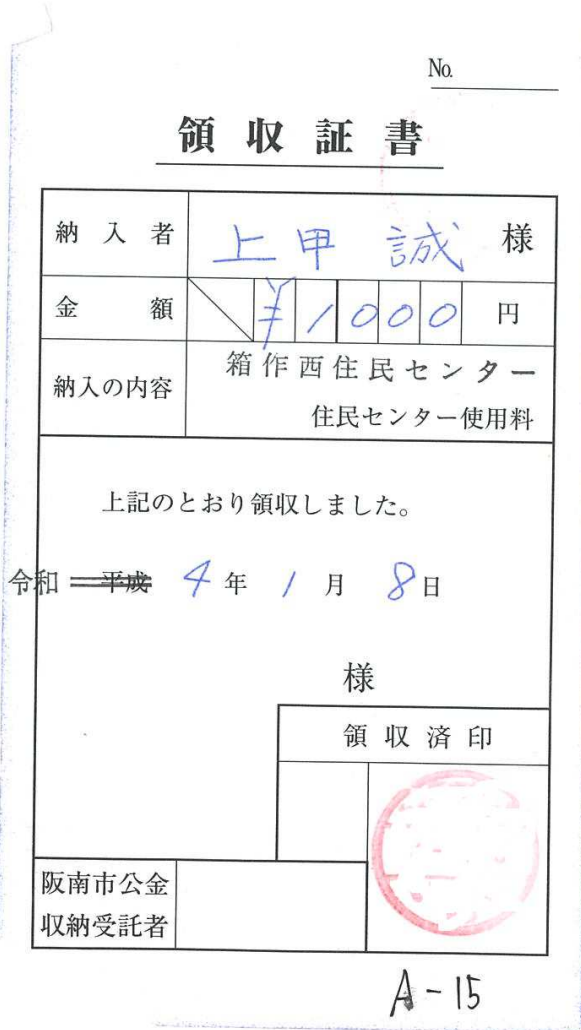 No.
領収証書
納入者 上甲 誠 様
金額 ¥1000 円
納入の内容 箱作西住民センター
住民センター使用料
上記のとおり領収しました。
令和 平成 4年 1月 8日
様
領収済印
阪南市公金
収納受託者
A-15